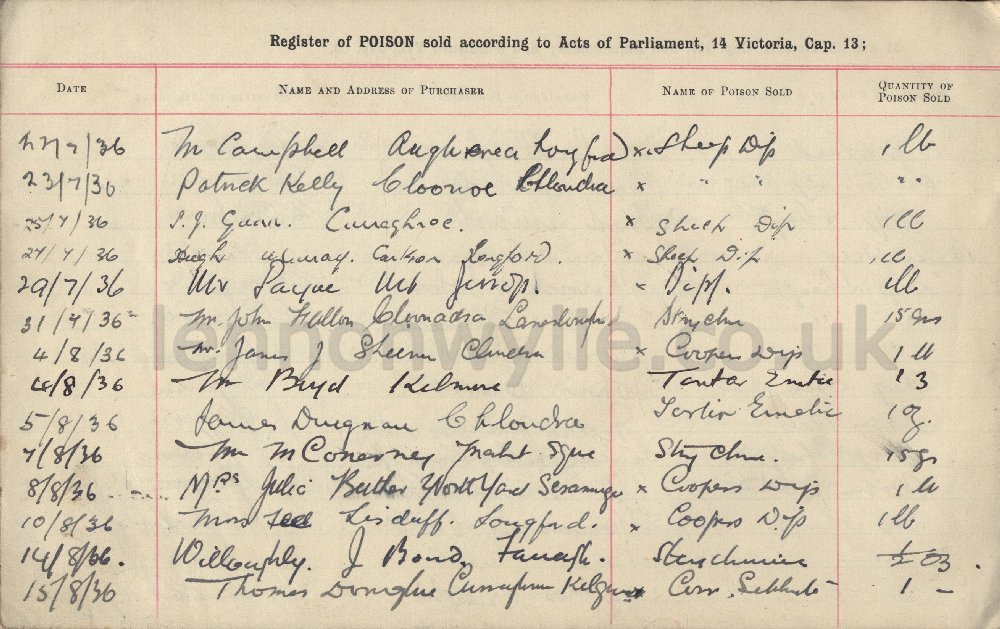 Register of POISON sold according to Acts of Parliament, 14 Victoria, Cap. 13;
DATE NAME AND ADDRESS OF PURCHASER NAME OF POISON SOLD QUANTITY OF POISON SOLD
22/7/36 M Campbell Longford x. Sheep Dip 1 lb
23/7/36 Patrick Kelly Cloonoe Clondra x " " " "
25/7/36 P.J. Curraghroe. x Sheep Dip 1 lb
27/7/36 Hugh Murray. Longford. x Sheep Dip 1 lb
29/7/36 Mr Payne Mt Jessop. x Dip. 1 lb
31/7/36 Mr. John Fallon 15 grs
4/8/36 Mr. James J Sheerin Clondra x Coopers Dip 1 lb
4/8/36 Mr Boyd Kilmore Tartar Emetic 1 3
5/8/36 James Duignan Clondra Tartar Emetic 1 oz.
7/8/36 Mr Market Sque Strychne. 15 grs
8/8/36 Mrs Julia Butler x Coopers Dip 1 lb
10/8/36 Lisduff. Longford. x Coopers Dip 1 lb
14/8/36. Willoughby. J Bond, Farragh. Strychnine ½ oz.
15/8/36 Thomas Donoghue x Corr. Sublimate 1 -
lennonwylie.co.uk